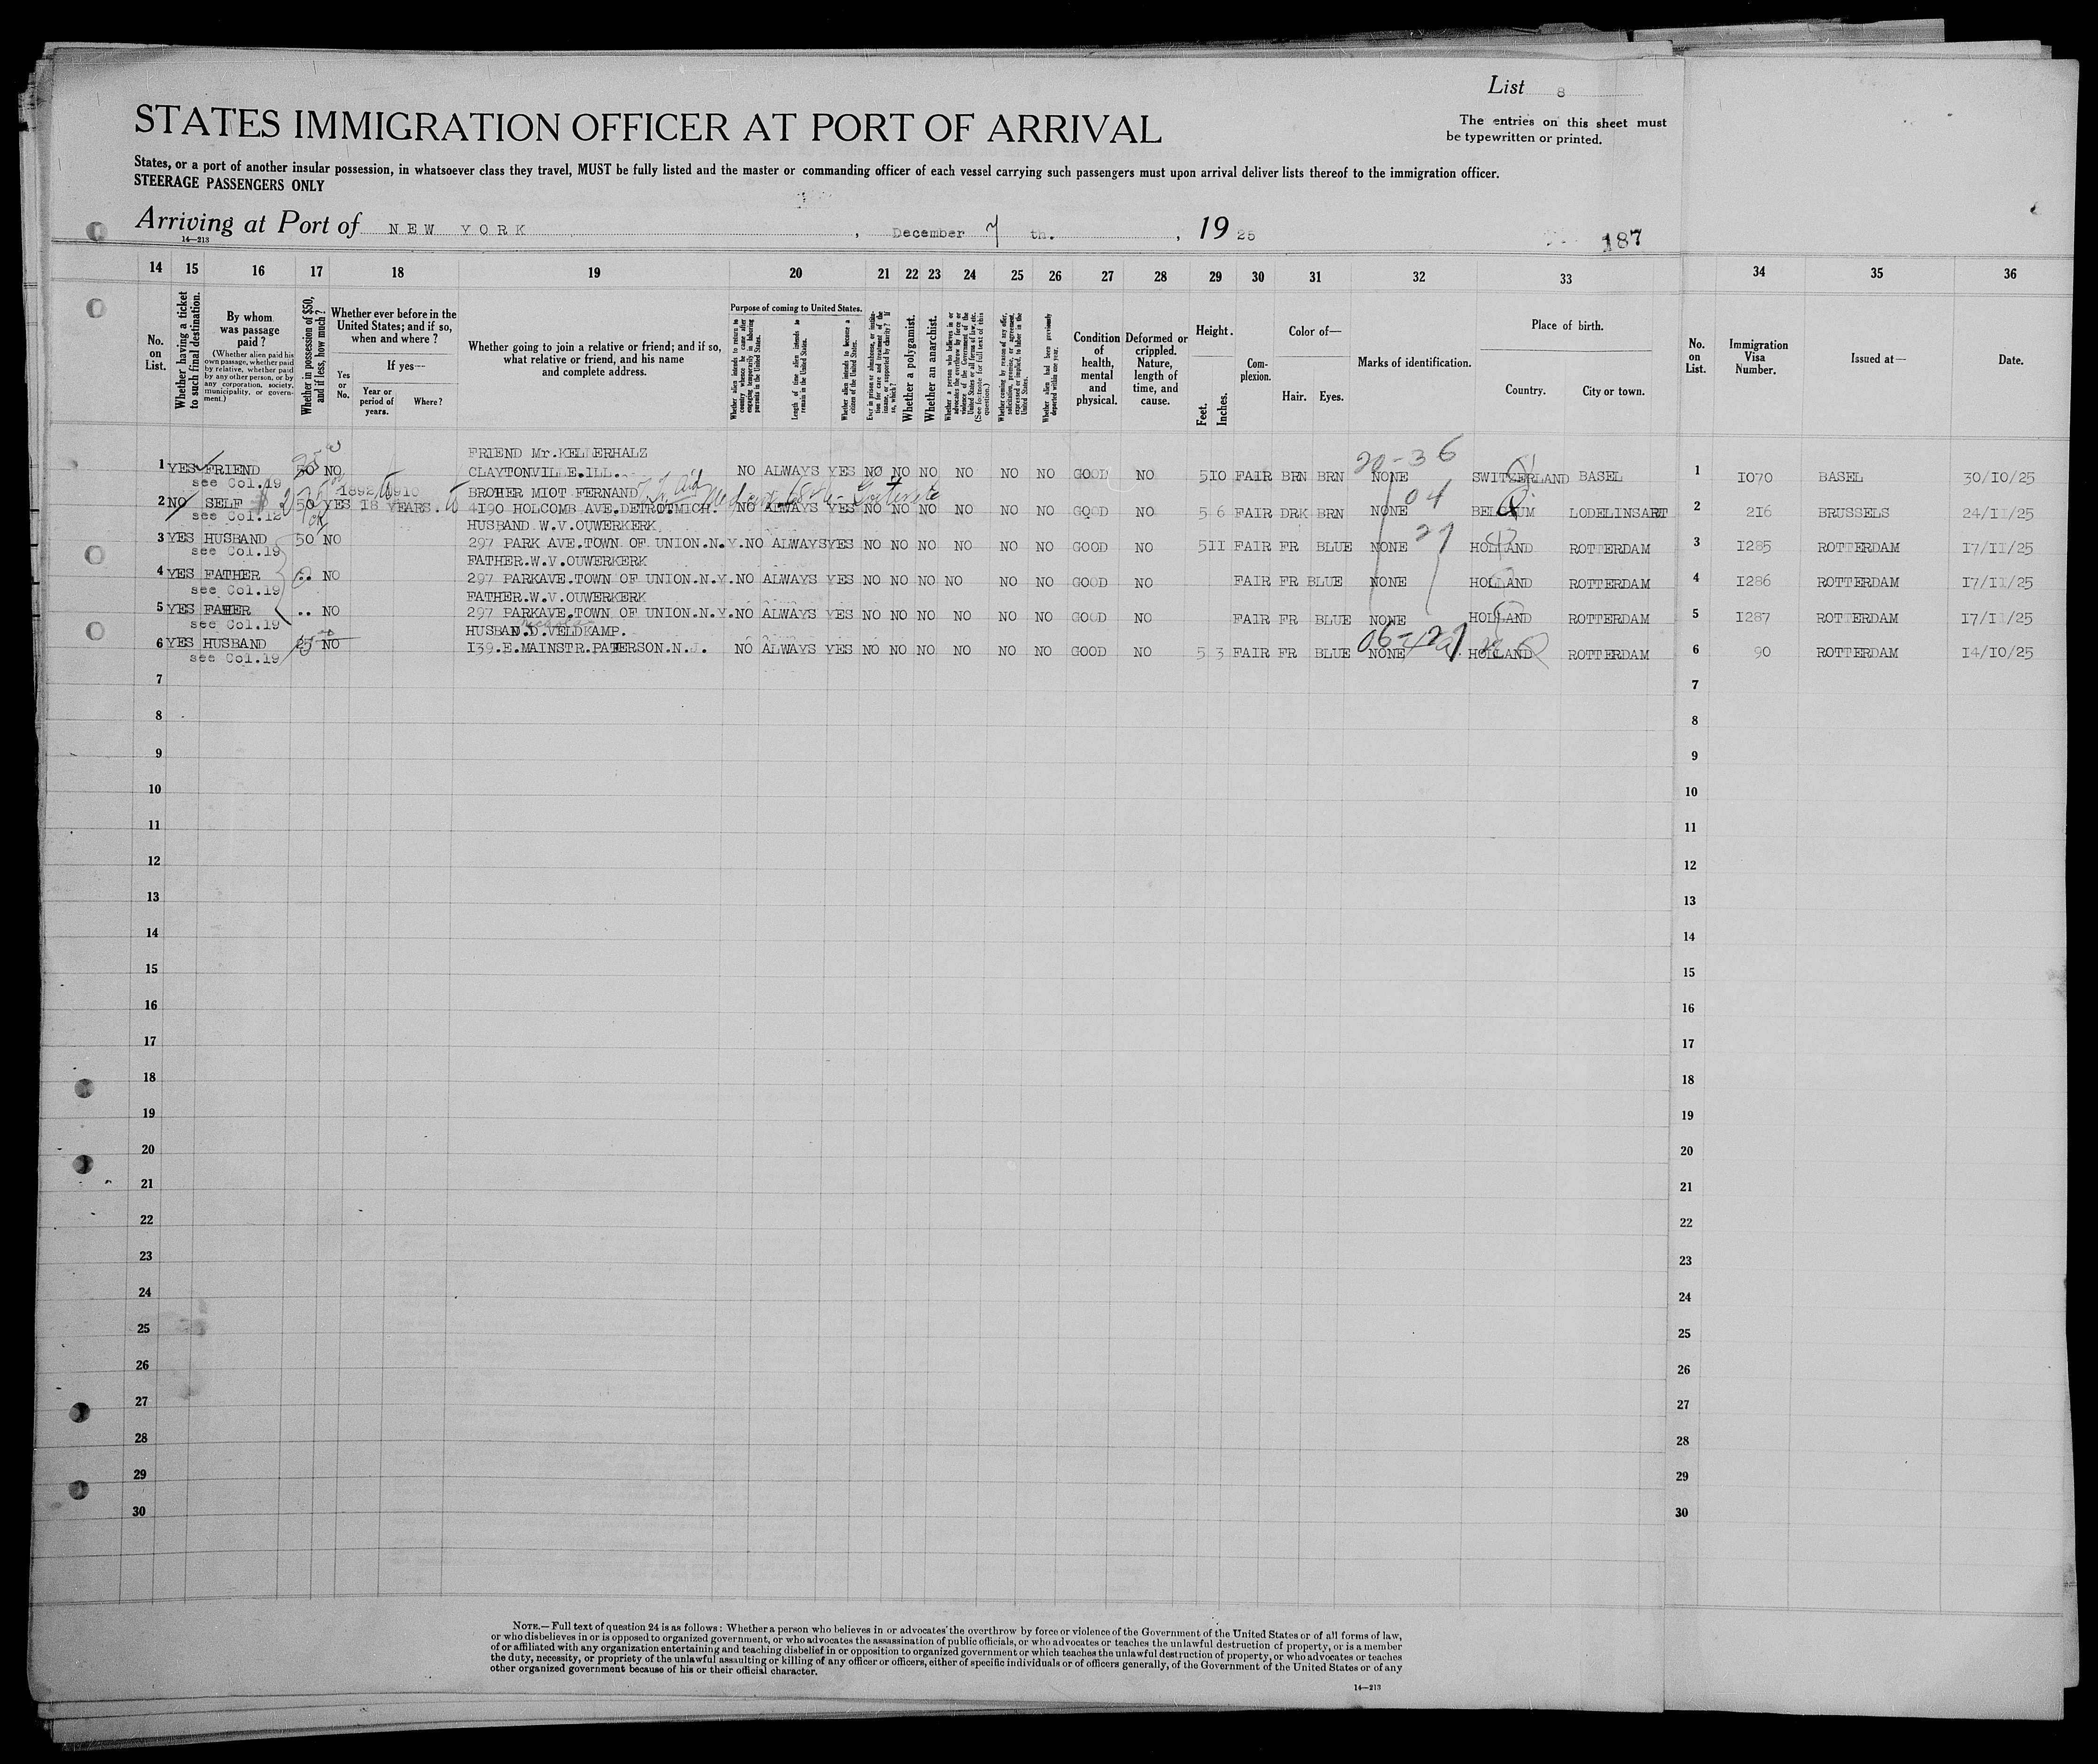 List 8
STATES IMMIGRATION OFFICER AT PORT OF ARRIVAL
The entries on this sheet must
be typewritten or printed.
States, or a port of another insular possession, in whatsoever class they travel, MUST be fully listed and the master or commanding officer of each vessel carrying such passengers must upon arrival deliver lists thereof to the immigration officer.
STEERAGE PASSENGERS ONLY
Arriving at Port of NEW YORK, December 7 th., 19 25
14—213
187
14 15 16 17 18 19 20 21 22 23 24 25 26 27 28 29 30 31 32 33 34 35 36
No. on List.
Whether having a ticket to such final destination.
By whom was passage paid?
(Whether alien paid his own passage, whether paid by relative, whether paid by any other person, or by any corporation, society, municipality, or government.)
Whether in possession of $50, and if less, how much?
Whether ever before in the United States; and if so, when and where?
Yes or No.
If yes—
Year or period of years.
Where?
Whether going to join a relative or friend; and if so, what relative or friend, and his name and complete address.
Purpose of coming to United States.
Whether alien intends to return to country whence he came after engaging temporarily in laboring pursuits in the United States.
Length of time alien intends to remain in the United States.
Whether alien intends to become a citizen of the United States.
Ever in prison or almshouse, or institution for care and treatment of the insane, or supported by charity? If so, which?
Whether a polygamist.
Whether an anarchist.
Whether a person who believes in or advocates the overthrow by force or violence of the Government of the United States or all forms of law, etc. (See footnote for full text of this question.)
Whether coming by reason of any offer, solicitation, promise, or agreement, expressed or implied, to labor in the United States.
Whether alien had been previously deported within one year.
Condition of health, mental and physical.
Deformed or crippled. Nature, length of time, and cause.
Height.
Feet. Inches.
Complexion.
Color of—
Hair. Eyes.
Marks of identification.
Place of birth.
Country. City or town.
No. on List.
Immigration Visa Number.
Issued at—
Date.
FRIEND Mr.KELLERHALZ
1 YES FRIEND 50 NO CLAYTONVILLE.ILL. NO ALWAYS YES NO NO NO NO NO NO GOOD NO 5 10 FAIR BRN BRN NONE SWITZERLAND BASEL 1 1070 BASEL 30/10/25
20-36
see Col.19
1892/1910 BROTHER MIOT FERNAND
2 NO SELF 50 YES 18 YEARS. 4190 HOLCOMB AVE.DETROTMICH. NO ALWAYS YES NO NO NO NO NO NO GOOD NO 5 6 FAIR DRK BRN NONE BELGIUM LODELINSART 2 216 BRUSSELS 24/11/25
04
see Col.12
HUSBAND W.V.OUWERKERK
3 YES HUSBAND 50 NO 297 PARK AVE.TOWN OF UNION.N.Y. NO ALWAYS YES NO NO NO NO NO NO GOOD NO 5 11 FAIR FR BLUE NONE HOLLAND ROTTERDAM 3 1285 ROTTERDAM 17/11/25
27
see Col.19
FATHER.W.V.OUWERKERK
4 YES FATHER .. NO 297 PARKAVE.TOWN OF UNION.N.Y. NO ALWAYS YES NO NO NO NO NO NO GOOD NO FAIR FR BLUE NONE HOLLAND ROTTERDAM 4 1286 ROTTERDAM 17/11/25
see Col.19
FATHER.W.V.OUWERKERK
5 YES FAHER .. NO 297 PARKAVE.TOWN OF UNION.N.Y. NO ALWAYS YES NO NO NO NO NO NO GOOD NO FAIR FR BLUE NONE HOLLAND ROTTERDAM 5 1287 ROTTERDAM 17/11/25
see Col.19
HUSBAND.D.VELDKAMP.
6 YES HUSBAND 25 NO 139.E.MAINSTR.PATERSON.N.J. NO ALWAYS YES NO NO NO NO NO NO GOOD NO 5 3 FAIR FR BLUE NONE HOLLAND ROTTERDAM 6 90 ROTTERDAM 14/10/25
see Col.19
7 7
8 8
9 9
10 10
11 11
12 12
13 13
14 14
15 15
16 16
17 17
18 18
19 19
20 20
21 21
22 22
23 23
24 24
25 25
26 26
27 27
28 28
29 29
30 30
NOTE.—Full text of question 24 is as follows: Whether a person who believes in or advocates the overthrow by force or violence of the Government of the United States or of all forms of law,
or who disbelieves in or is opposed to organized government, or who advocates the assassination of public officials, or who advocates or teaches the unlawful destruction of property, or is a member
of or affiliated with any organization entertaining and teaching disbelief in or opposition to organized government or which teaches the unlawful destruction of property, or who advocates or teaches
the duty, necessity, or propriety of the unlawful assaulting or killing of any officer or officers, either of specific individuals or of officers generally, of the Government of the United States or of any
other organized government because of his or their official character.
14—213